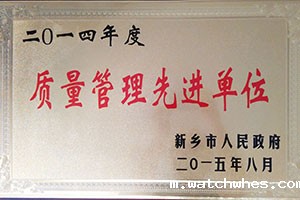 二〇一四年度
质量管理先进单位
新乡市人民政府
二〇一五年八月
m.watchwhes.com